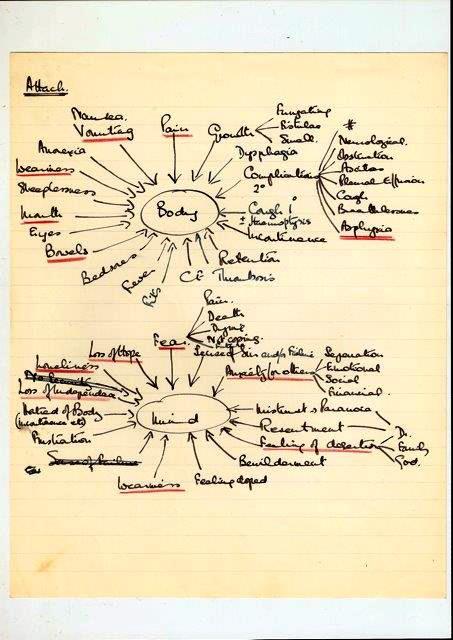 Attack.
Nausea.
Vomiting
Pain
Growth
Fungating
Fistulas
Smell.
Anorexia
Dysphagia
#
Neurological.
Obstruction
Ascites
Pleural Effusion
Cough
Breathlessness
Asphyxia
Weariness
Complications
2°
Sleeplessness
Body
Mouth
Cough 1°
± Haemoptysis
Eyes
Incontinence
Bowels
Retention
Bedsores
Fever
Fits
CF
Thrombosis
Pain.
Death
Dying
Not coping.
Fear
Loss of Hope
Sense of Sin and/or Failure
Loneliness
Anxiety for others
Separation
Emotional
Social
Financial.
Loss of Independence
Hatred of Body
(incontinence etc)
Mind
Mistrust → Paranoia
Frustration
Resentment
Feeling of desertion
Dr.
Family
God.
Sense of Failure
Bewilderment
Weariness
Feeling doped